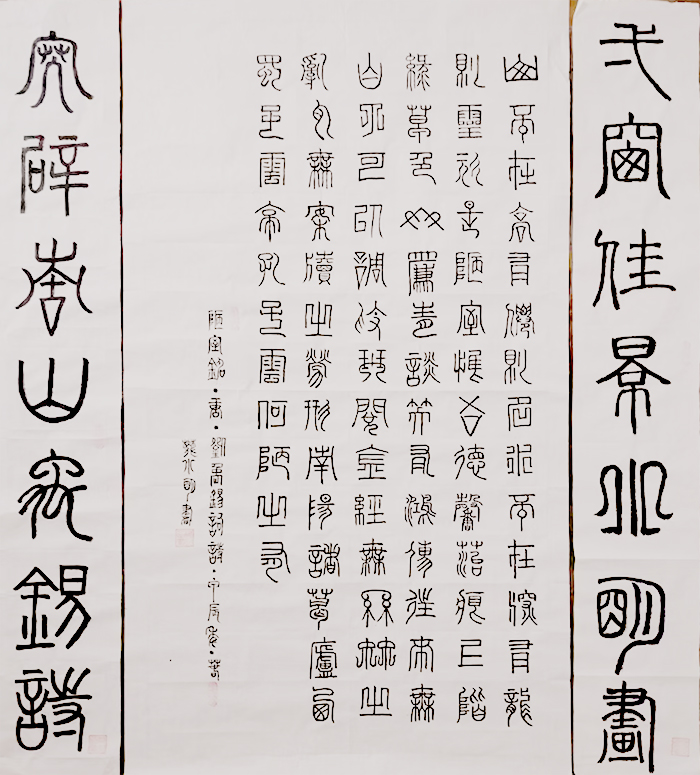 弌窗佳景水明畫
山不在高有僊則名水不在深有龍
則靈斯是陋室惟吾德馨苔痕上階
綠草色入簾青談笑有鴻儒往來無
白丁可以調素琴閱金經無絲竹之
亂耳無案牘之勞形南陽諸葛廬西
蜀子雲亭孔子雲何陋之有
陋室銘·唐·劉禹錫詩·甲辰年·書
水明書
山錫詩